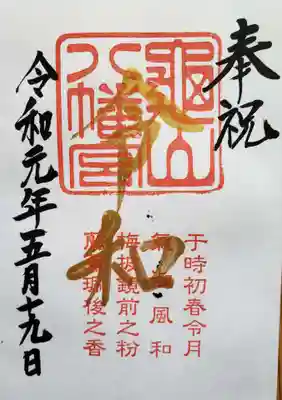 奉祝
龜山
八幡宮
令和
于時初春令月
氣淑風和
梅披鏡前之粉
蘭薫珮後之香
令和元年五月十九日